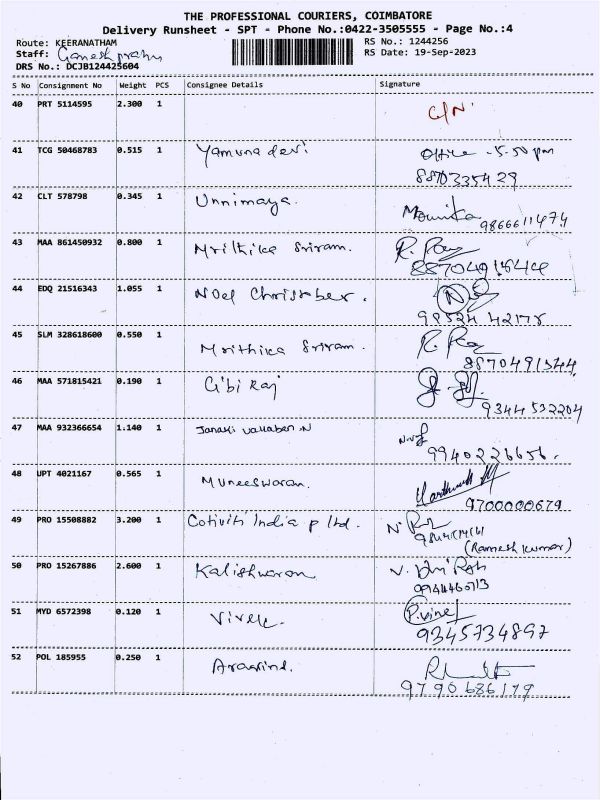 THE PROFESSIONAL COURIERS, COIMBATORE
Delivery Runsheet - SPT - Phone No.:0422-3505555 - Page No.:4
Route: KEERANATHAM
RS No.: 1244256
Staff: Ganesh prabhu
RS Date: 19-Sep-2023
DRS No.: DCJB124425604
S No Consignment No Weight PCS Consignee Details Signature
40 PRT 5114595 2.300 1 C/N
41 TCG 50468783 0.515 1 Yamuna devi office - 5.50 pm
8870335429
42 CLT 578798 0.345 1 Unnimaya. Mounika
9866611474
43 MAA 861450932 0.800 1 Mrithika Sriram.
44 EDQ 21516343 1.055 1 Noel Christober.
45 SLM 328618600 0.550 1 Mrithika Sriram.
8870491344
46 MAA 571815421 0.190 1 Cibi Raj
9344532204
47 MAA 932366654 1.140 1 Janaki vallaban.N
9940226656.
48 UPT 4021167 0.565 1 Muneeswaran.
9700000679
49 PRO 15508882 3.200 1 Cotiviti India p ltd.
(Ramesh kumar)
50 PRO 15267886 2.600 1 Kalishwaran
51 MYD 6572398 0.120 1 Vivek.
9345734897
52 POL 185955 0.250 1 Aravind.
9790686179